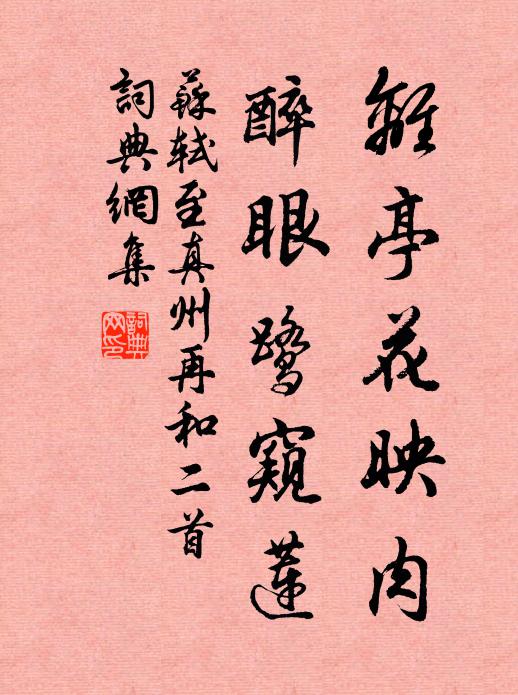 離亭花映肉
醉眼鷺窺蓮
蘇軾至真州再和二首
詞典網集
詞典网印